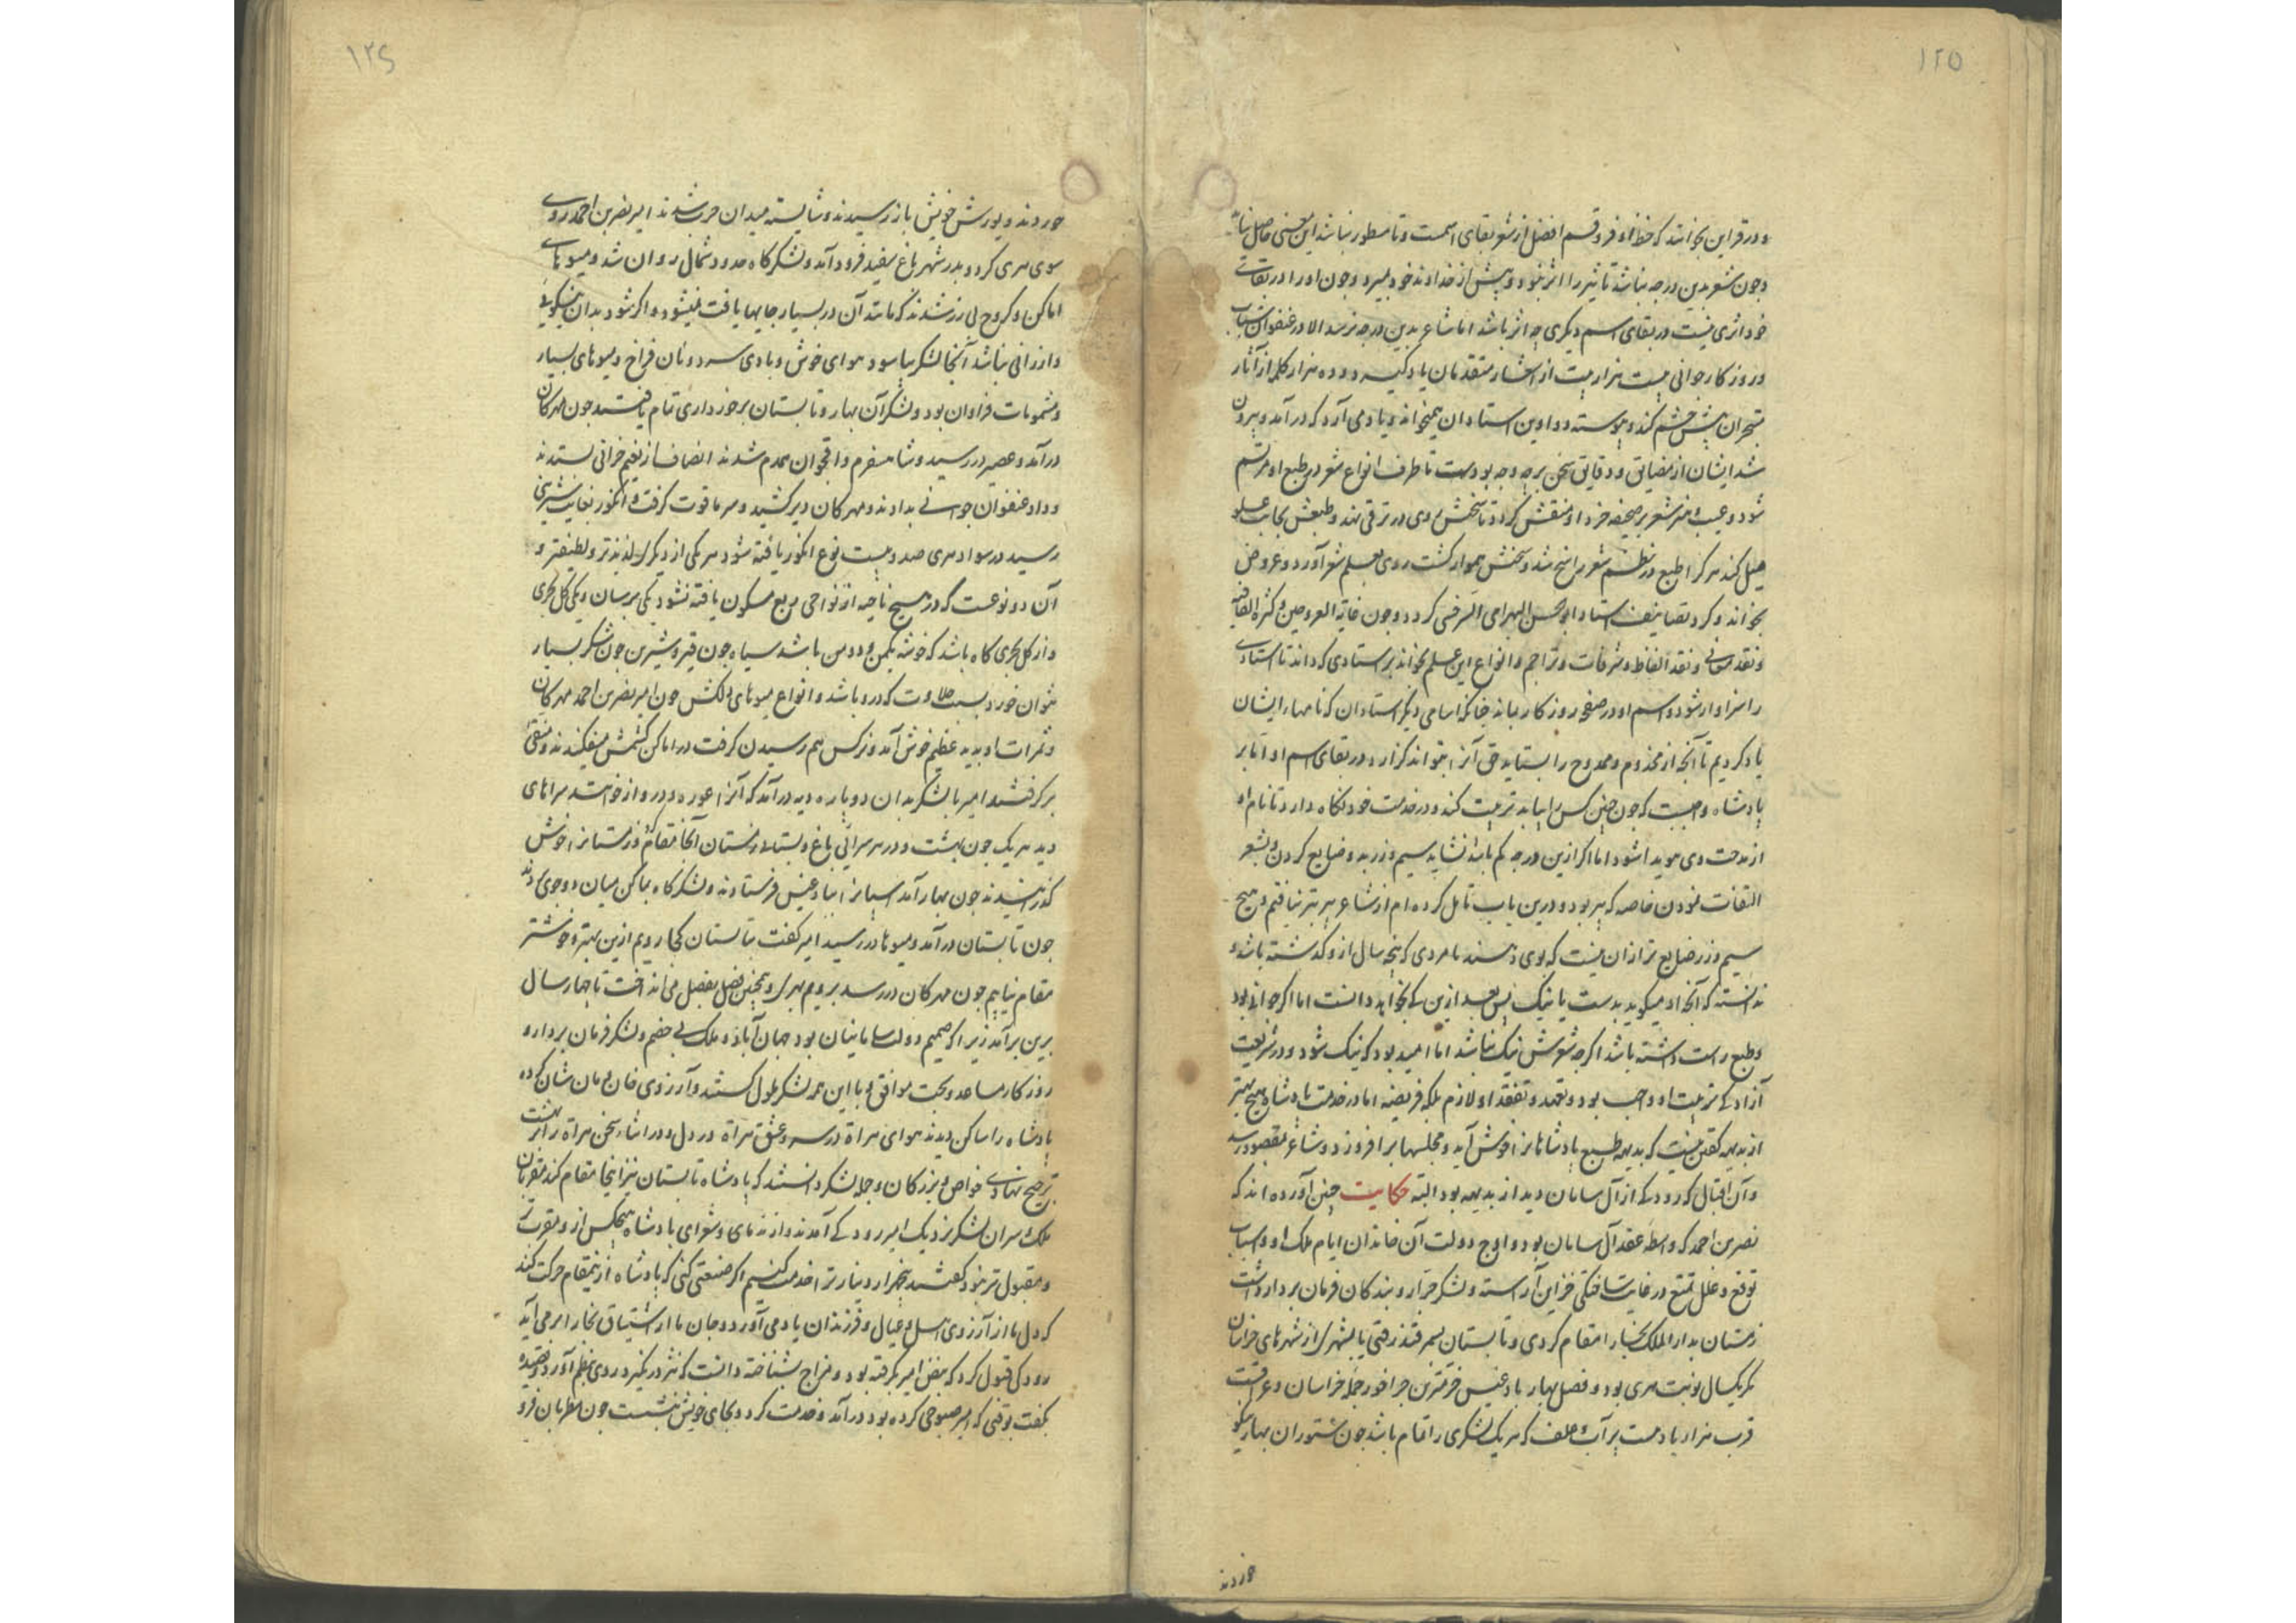 ۱۲۵
و در قراین بخوانند که حظ اوفر و قسم افضل از شعر بقای اسمست و تا مسطور نباشد این معنی حاصل نیاید
و چون شعر بدین درجه نباشد تاثیر را اثر نبود و پیش از خداوند خود بمیرد و چون او را در بقای
خود اثری نیست در بقای اسم دیگری چه اثر باشد اما شاعر بدین درجه نرسد الا در عنفوان شباب
و روزکار جوانی بیست هزار بیت از اشعار متقدمان یاد کیرد و ده هزار کلمه از آثار
متاخران پیش چشم کند و پیوسته دواوین استادان همیخواند و یاد می آرد که در آمد و بیرون
شد ایشان از مضایق و دقایق سخن بر چه وجه بودست تا طرف انواع شعر در طبع او مرتسم
شود و عیب و هنر شعر بر صحیفه خرد او منقش کردد تا سخنش روی در ترقی نهد و طبعش بجانب علو
میل کند هر کرا طبع در نظم شعر راسخ شد و سخنش هموار کشت روی بعلم شعر آورد و عروض
بخواند و کرد تصانیف استاد ابوالحسن البهرامی السرخسی کردد چون غایة العروضین و کنز القافیه
و نقد معانی و نقد الفاظ و سرقات و تراجم و انواع این علم بخواند بر استادی که داند تا استادی
را سزاوار شود و اسم او در صفحه روزکار بماند چنانکه اسامی دیکر استادان که نامهاء ایشان
یاد کردیم تا آنچه از مخدوم و ممدوح را بستاید حق آنرا بتواند کزارد در بقای اسم او اما بر
پادشاه واجبست که چون چنین کس را بیابد تربیت کند و در خدمت خود نکاه دارد تا نام او
از مدحت وی هویدا شود اما اکر ازین درجه کم باشد نشاید سیم و زر بدو ضایع کردن و بشعر
التفات نمودن خاصه که پیر بود و درین باب تامل کرده ام از شاعر پیر بتر نیافتم و هیچ
سیم و زر ضایع تر از ان نیست که بوی دهند نامردی که پنجه سال از و کذشته باشد و
ندانسته که آنچه او میکوید بدست یا نیک پس بعد ازین کی بخواهد دانست اما اکر جوانی بود
و طبع راست داشته باشد اکرچه شعرش نیک نباشد اما امید بود که نیک شود و در شریعت
آزادکی تربیت او واجب بود و تعهد و تفقد او لازم بلکه فریضه اما در خدمت پادشاه هیچ بهتر
از بدیهه کفتن نیست که بدیهه طبع پادشاهانرا خوش آید و مجلسها برافروزد و شاعر بمقصود رسد
و آن اقبال که رودکی از آل سامان دید از بدیهه بود البته حکایت چنین آورده اند که
نصر بن احمد که واسطه عقد آل سامان بود و اوج دولت آن خاندان ایام ملک او و اسباب
توقع و علل تمتع در غایت ساختکی خزاین آراسته و لشکر جرار و بندکان فرمان بردار داشت
زمستان بدار الملک بخارا مقام کردی و تابستان بسمرقند رفتی یا بشهری از شهرهای خراسان
مکر یکسال نوبت هری بود و فصل بهار بادغیس خرمترین چراخور جمله خراسان و عراقست
قرب هزار یا دست پر آب و علف که هر یک لشکری را تمام باشد چون ستوران بهار نیکو
خوردند
۱۲۶
خوردند و بورش خویش باز رسیدند و شایسته میدان حرب شدند امیر نصر بن احمد روی
سوی هری کرد و بدر شهر باغ سفید فرود آمد و لشکرکاه حدود شمال روان شد و میوهای
اماکن و کروخ لی رز شدند که مانند آن در بسیار جایها یافت نمیشود و اکر شود بدان نیکویی
و ارزانی نباشد آنجا لشکر بیاسود هوای خوش و بادی سرد و نان فراخ و میوهای بسیار
و مشمومات فراوان بود و لشکر آن بهار و تابستان برخورداری تمام یافتند چون مهرکان
درآمد و عصیر در رسید و شاهسفرم و اقحوان همدم شدند انصاف از نعیم خزانی بستدند
و داد عنفوان جوانی بدادند و مهرکان دیر کشید و سرما قوت کرفت و انکور بغایت شیرینی
رسید در سواد هری صد و بیست نوع انکور یافته شود هر یکی از دیکری لذیذتر و لطیفتر و
آن دو نوعست که در هیچ ناحیه از نواحی ربع مسکون یافته نشود یکی پرنیان و یکی کلنجری
و از کلنجری کاه باشد که خوشه یکمن و دو من باشد سیاه چون قیر و شیرین چون شکر بسیار
بتوان خورد بسبب حلاوت که درو باشد و انواع میوهای دلکش چون امیر نصر بن احمد مهرکان
و ثمرات او بدید عظیم خوش آمد و نرکس هم رسیدن کرفت در اماکن کشمش میفکندند و منقی
برکرفتند امیر با لشکر بدان دوپاره دیه درآمد که آنرا غوره و درواز خوانند سراهای
دید هر یک چون بهشت و در هر سرائی باغ و بستانی زمستان آنجا مقام کردند و زمستانرا خوش
کذرانیدند چون بهار آمد اسپانرا ببادغیس فرستادند و لشکرکاه بماکن میان دو جوی زدند
چون تابستان درآمد و میوها در رسید امیر کفت تابستان کجا رویم ازین بهتر و خوشتر
مقام نیابیم چون مهرکان در رسد برویم بهر و همچنین فصل بفصل می انداخت تا چهار سال
برین برآمد زیرا که صمیم دولت سامانیان بود جهان آباد و ملک بی خصم و لشکر فرمان بردار و
روزکار مساعد و بخت موافق و با این همه لشکر ملول کشتند و آرزوی خان و مان شان کرد
پادشاه را ساکن دیدند هوای هراة در سر و عشق هراة در دل و در اثناء سخن هراة را بر بهشت
ترجیح نهادی خواص و بزرکان و جمله لشکر دانستند که پادشاه تابستان نیز اینجا مقام کند مقربان
ملک و سران لشکر نزدیک امیر رودکی آمدند و از ندمای و شعرای پادشاه هیچکس از و مقرب
و مقبول تر نبود کفتند پنجهزار دینار ترا خدمت کنیم اکر صنعتی کنی که پادشاه ازین مقام حرکت کند
که دل ما از آرزوی اهل و عیال و فرزندان یاد می آورد و جان ما از اشتیاق بخارا بر می آید
رودکی قبول کرد که نبض امیر بکرفته بود و مزاج بشناخته دانست که نثر درنکیرد روی بنظم آورد و قصیده
بکفت بوقتی که امیر صبوحی کرده بود درآمد و خدمت کرد و بجای خویش بنشست چون مطربان فرو